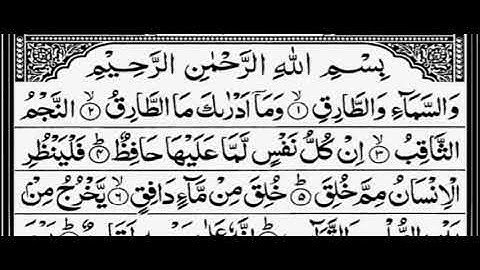 بِسْمِ اللهِ الرَّحْمٰنِ الرَّحِيْمِ
وَالسَّمَآءِ وَالطَّارِقِ ۙ﴿۱﴾ وَمَاۤ اَدْرٰىكَ مَا الطَّارِقُ ۙ﴿۲﴾ النَّجْمُ
الثَّاقِبُ ۙ﴿۳﴾ اِنْ كُلُّ نَفْسٍ لَّمَّا عَلَيْهَا حَافِظٌ ؕ﴿۴﴾ فَلْيَنْظُرِ
الْاِنْسَانُ مِمَّ خُلِقَ ؕ﴿۵﴾ خُلِقَ مِنْ مَّآءٍ دَافِقٍ ۙ﴿۶﴾ يَّخْرُجُ مِنْۢ